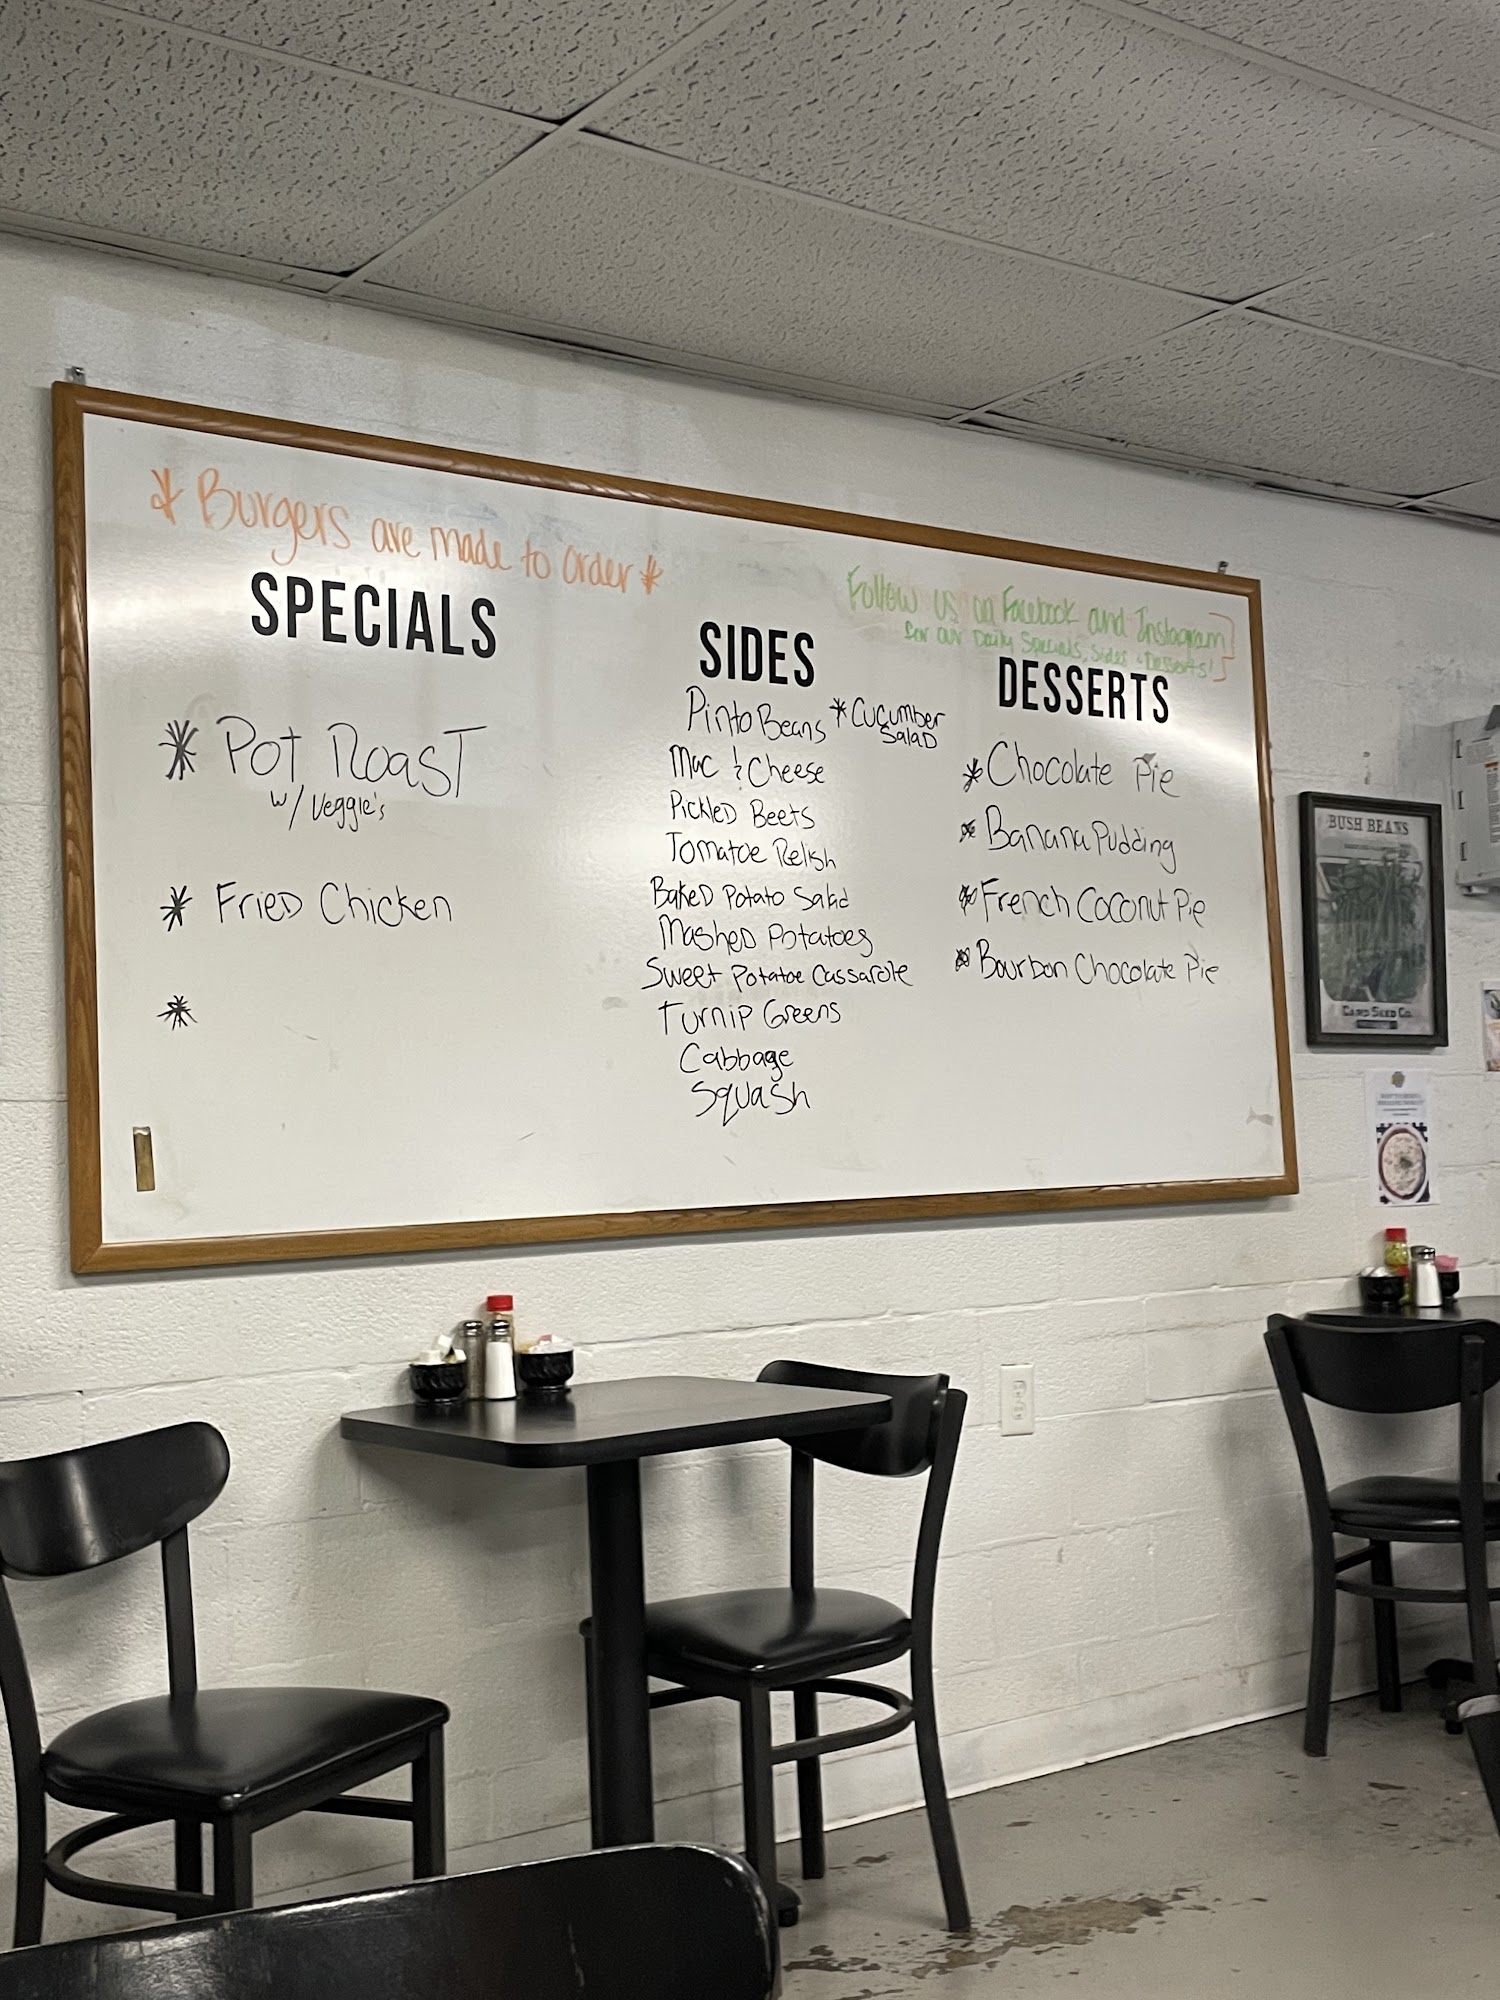 * Burgers are made to order *
Follow us on Facebook and Instagram
for our Daily Specials, Sides & Desserts!
SPECIALS
* Pot Roast
w/ Veggie's
* Fried Chicken
*
SIDES
Pinto Beans
* Cucumber
Salad
Mac & Cheese
Pickled Beets
Tomatoe Relish
Baked Potato Salad
Mashed Potatoes
Sweet Potatoe Cassarole
Turnip Greens
Cabbage
Squash
DESSERTS
* Chocolate Pie
* Banana Pudding
* French Coconut Pie
* Bourbon Chocolate Pie
BUSH BEANS
CARD SEED CO.